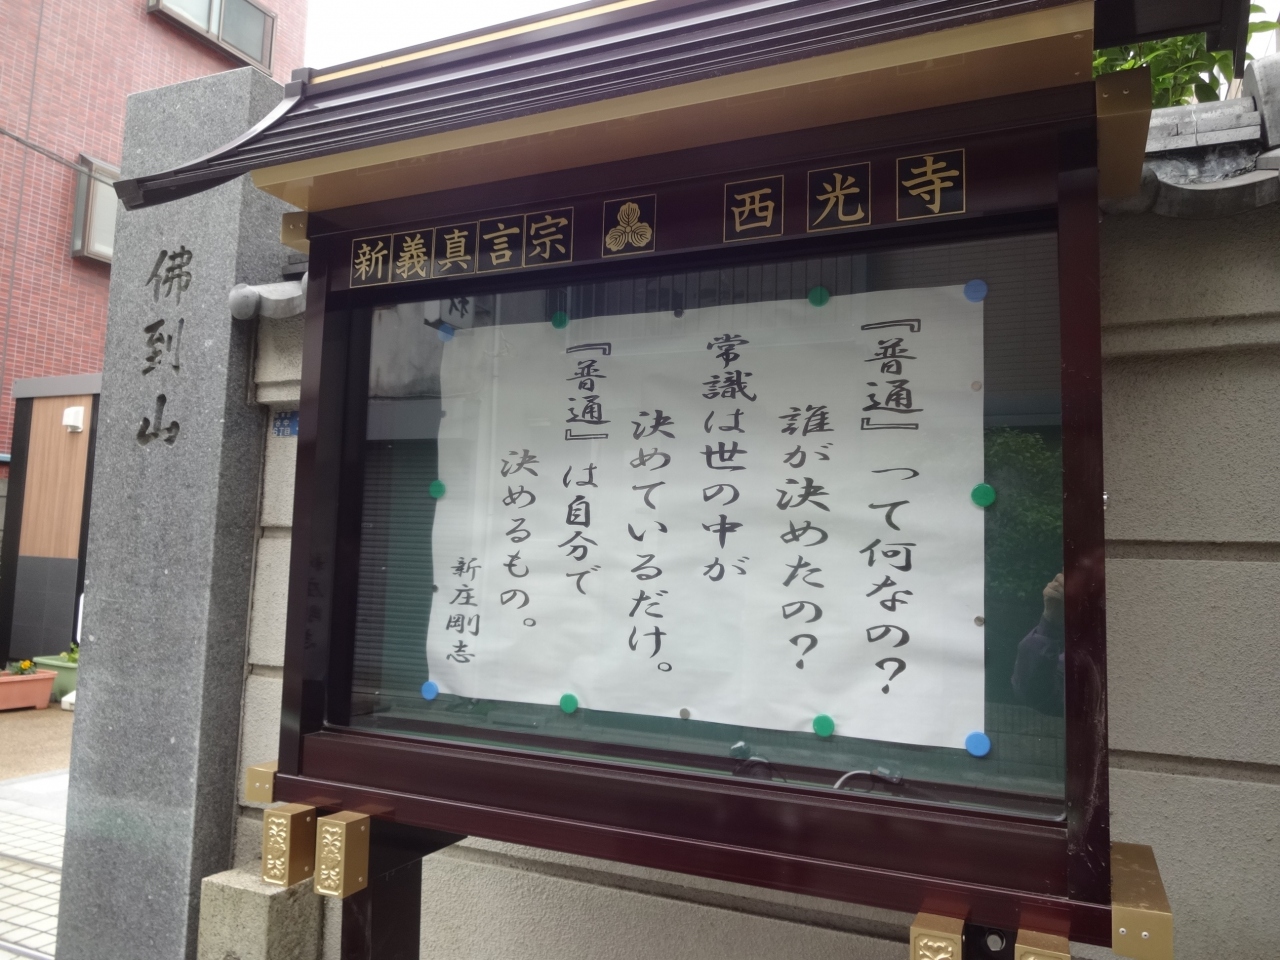 新義真言宗 西光寺
『普通』って何なの?
誰が決めたの?
常識は世の中が
決めているだけ。
『普通』は自分で
決めるもの。
新庄剛志
佛到山